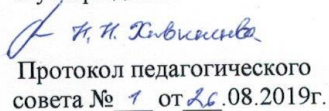 Н. Н.
Протокол педагогического
совета № 1 от 26.08.2019г.